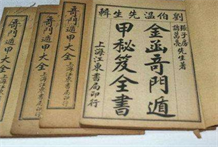 劉伯溫先生輯
諸葛亮
先生著
金函奇門遁
甲秘笈全書
上海江東書局印行
奇門遁甲大全
奇門遁甲大全